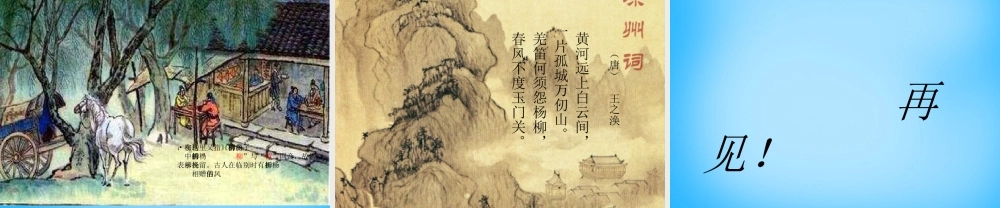 表挽留。古人在临别时有折杨
相赠的风
凉州词
（唐） 王之涣
黄河远上白云间，
一片孤城万仞山。
羌笛何须怨杨柳，
春风不度玉门关。
再
见！